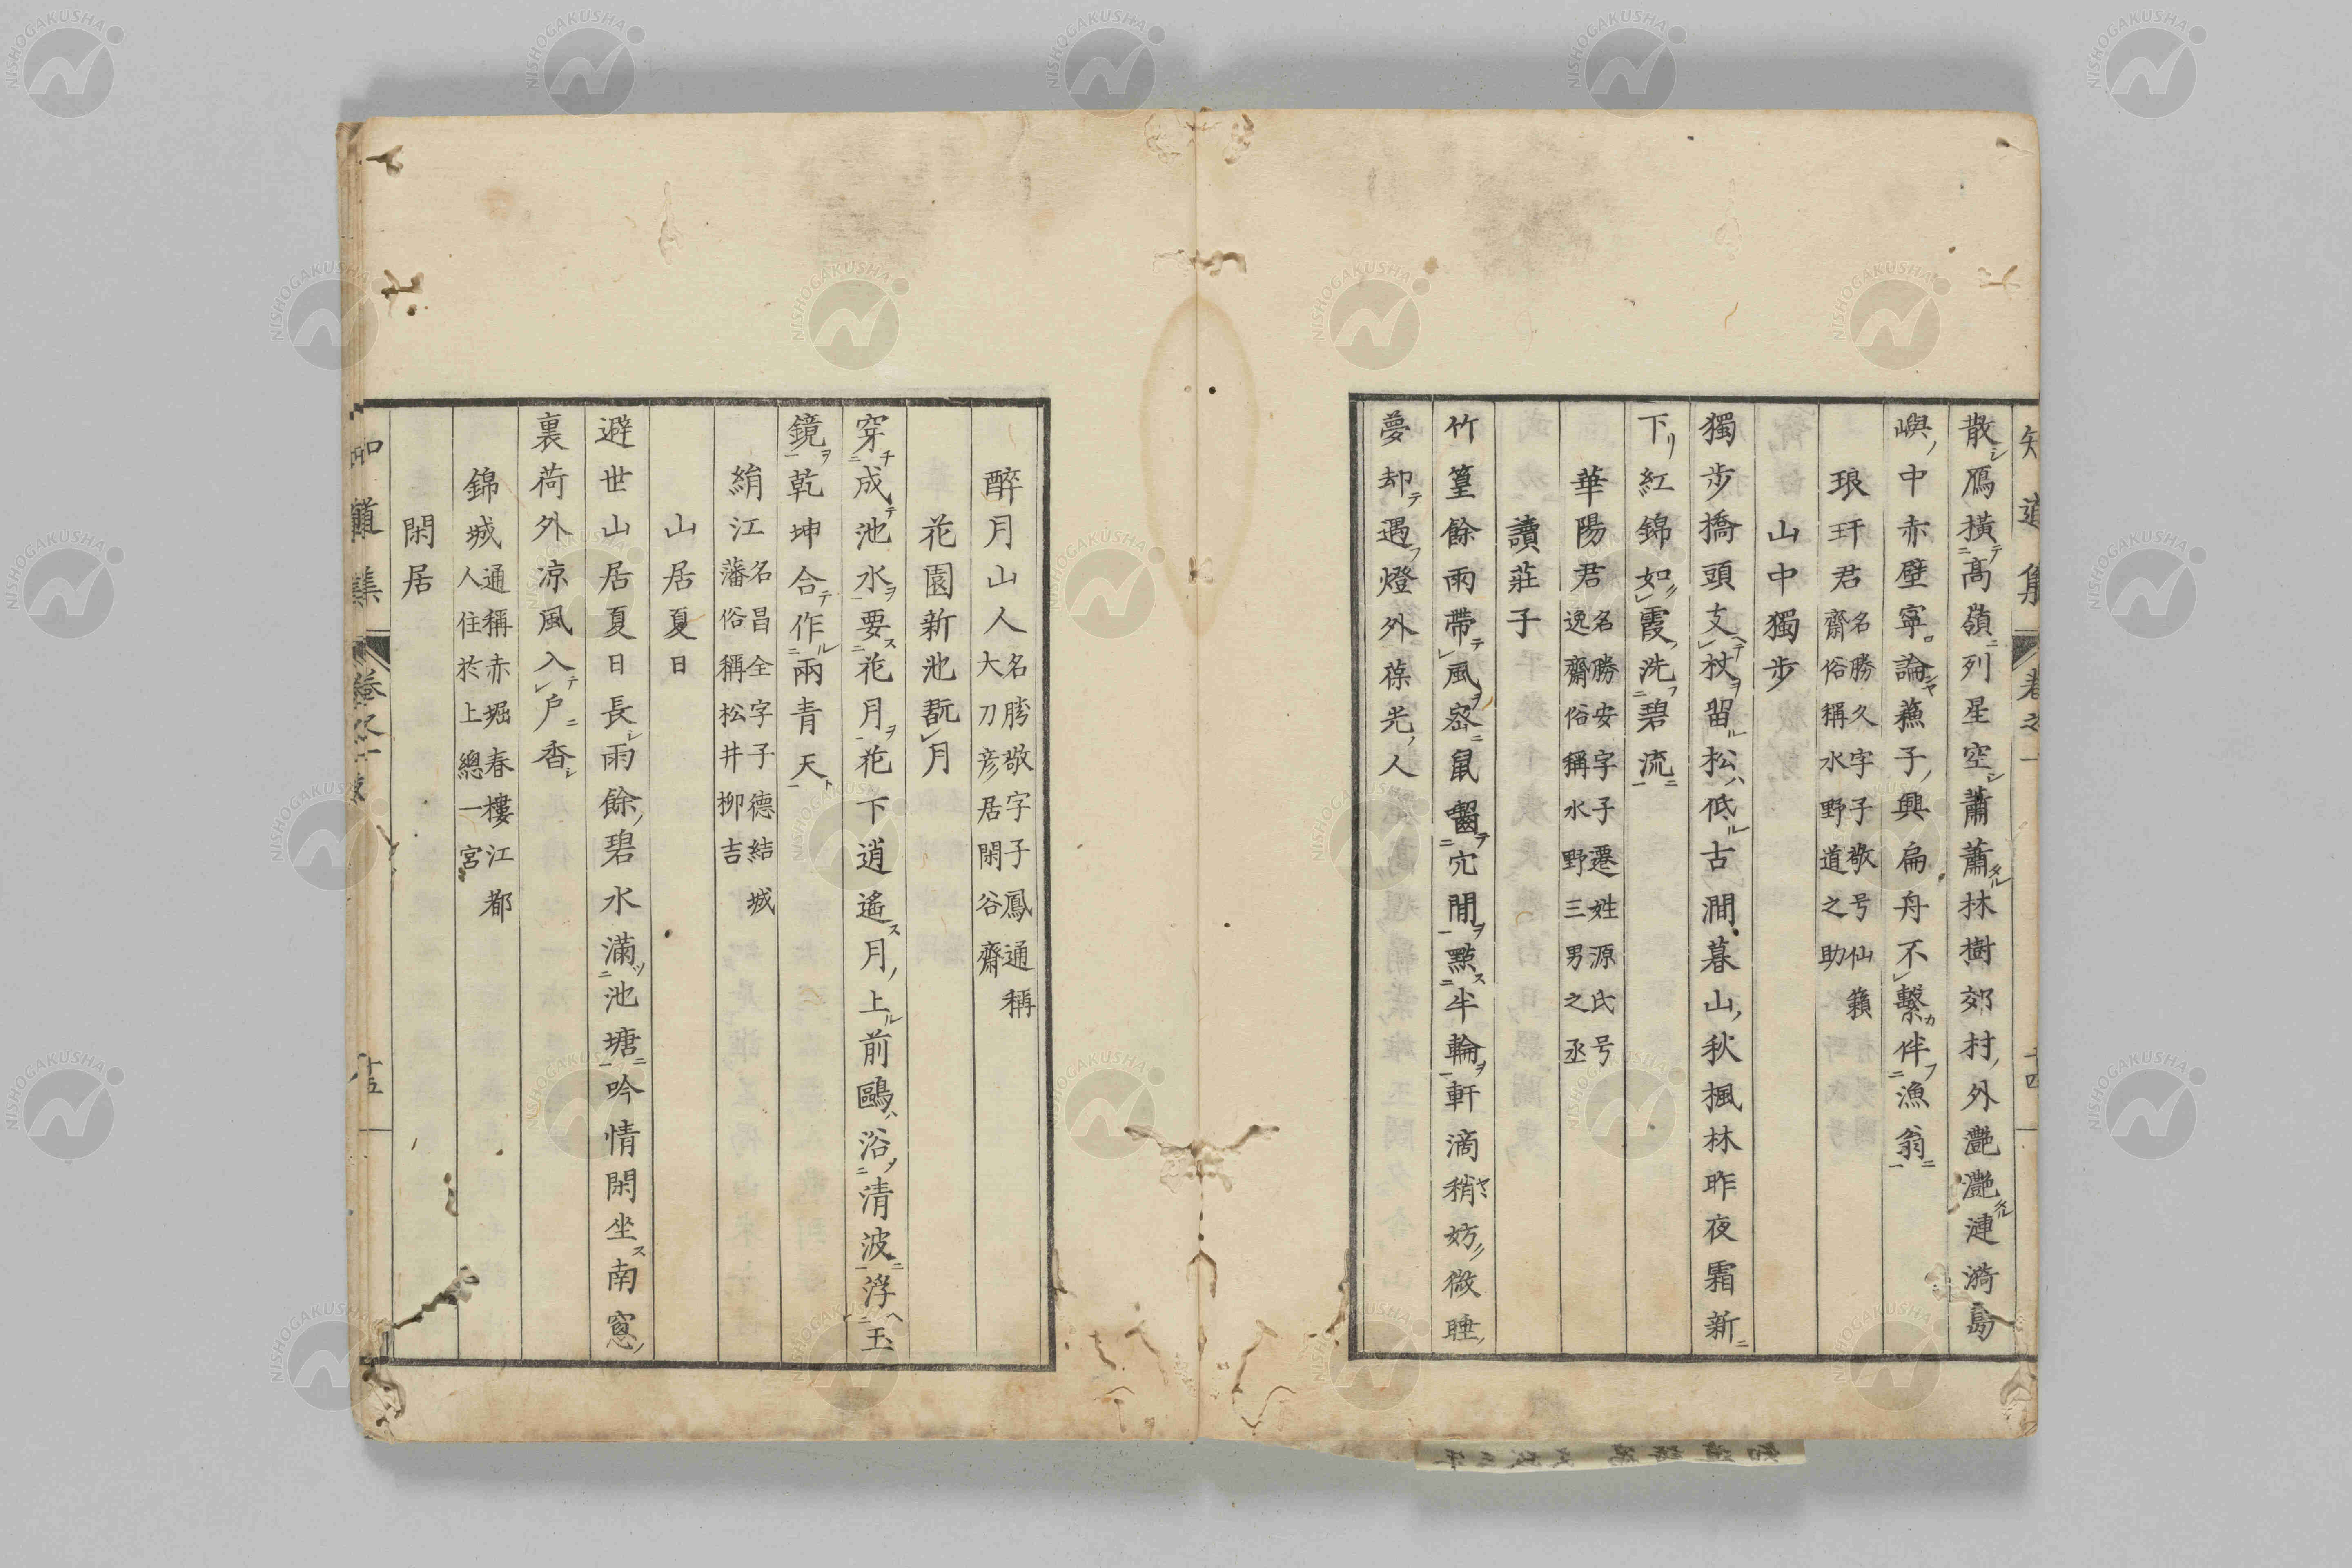 散雁橫高嶺列星空蕭蕭林樹郊村外灔灔漣漪島
嶼中赤壁寧論蘓子興扁舟不繫伴漁翁
琅玕君 名勝久字子敬号仙籟
齋俗稱水野道之助
山中獨步
獨步橋頭支杖留松低古澗暮山秋楓林昨夜霜新
下紅錦如霞洗碧流
華陽君 名勝安字子遷姓源氏号
逸齋俗稱水野三男之丞
讀莊子
竹篁餘雨帶風宻鼠齧穴間點半輪軒滴稍妨微睡
夢却遇燈外葆光人
知道集 卷之一 十四
醉月山人 名勝敬字子鳳通稱
大刀彦居閑谷齋
花園新池翫月
穿成池水要花月花下逍遙月上前鷗浴清波浮玉
鏡乾坤合作兩青天
絹江 名昌全字子德結城
藩俗稱松井柳吉
山居夏日
避世山居夏日長雨餘碧水滿池塘吟情閑坐南窓
裏荷外凉風入戶香
錦城 通稱赤堀春樓江都
人住於上總一宮
閑居
知道集 卷之一 十五
NISHOGAKUSHA